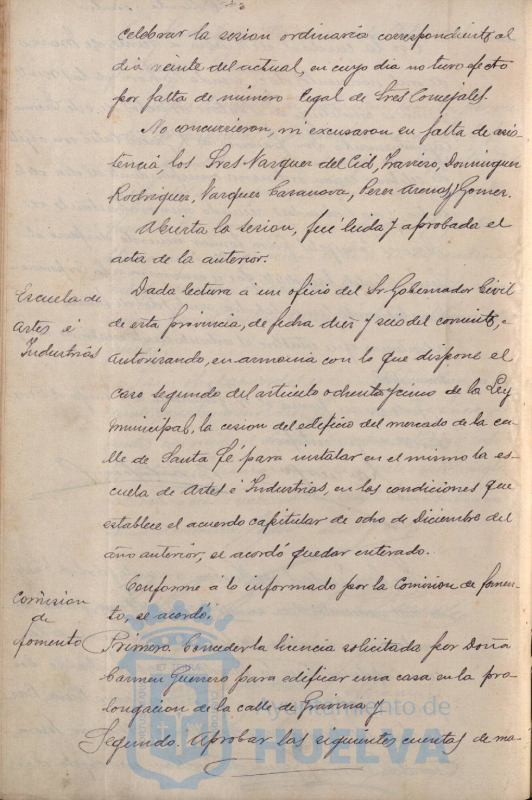 celebrar la sesion ordinaria correspondiente al
dia veinte del actual, en cuyo dia no tuvo efecto
por falta de número legal de Sres Concejales.
No concurrieron, ni excusaron su falta de asis
tencia, los Sres Vazquez del Cid, Traviero, Dominguez
Rodriguez, Vazquez Casanova, Perez Arenas y Gomez.
Abierta la sesion, fué leida y aprobada el
acta de la anterior.
Escuela de
Artes é
Industrias
Dada lectura á un oficio del Sr Gobernador Civil
de esta provincia, de fecha diez y seis del corriente,
autorizando, en armonia con lo que dispone el
caso segundo del articulo ochenta y cinco de la Ley
Municipal, la cesion del edificio del mercado de la ca
lle de Santa Fé para instalar en el mismo la es
cuela de Artes é Industrias, en las condiciones que
establece el acuerdo capitular de ocho de Diciembre del
año anterior, se acordó quedar enterado.
Comision
de
fomento
Conforme á lo informado por la Comision de fomen-
to, se acordó:
Primero. Conceder la licencia solicitada por Doña
Carmen Guerrero para edificar una casa en la pro
longacion de la calle de Gravina y
Segundo. Aprobar las siguientes cuentas de ma-
Ayuntamiento de
HUELVA